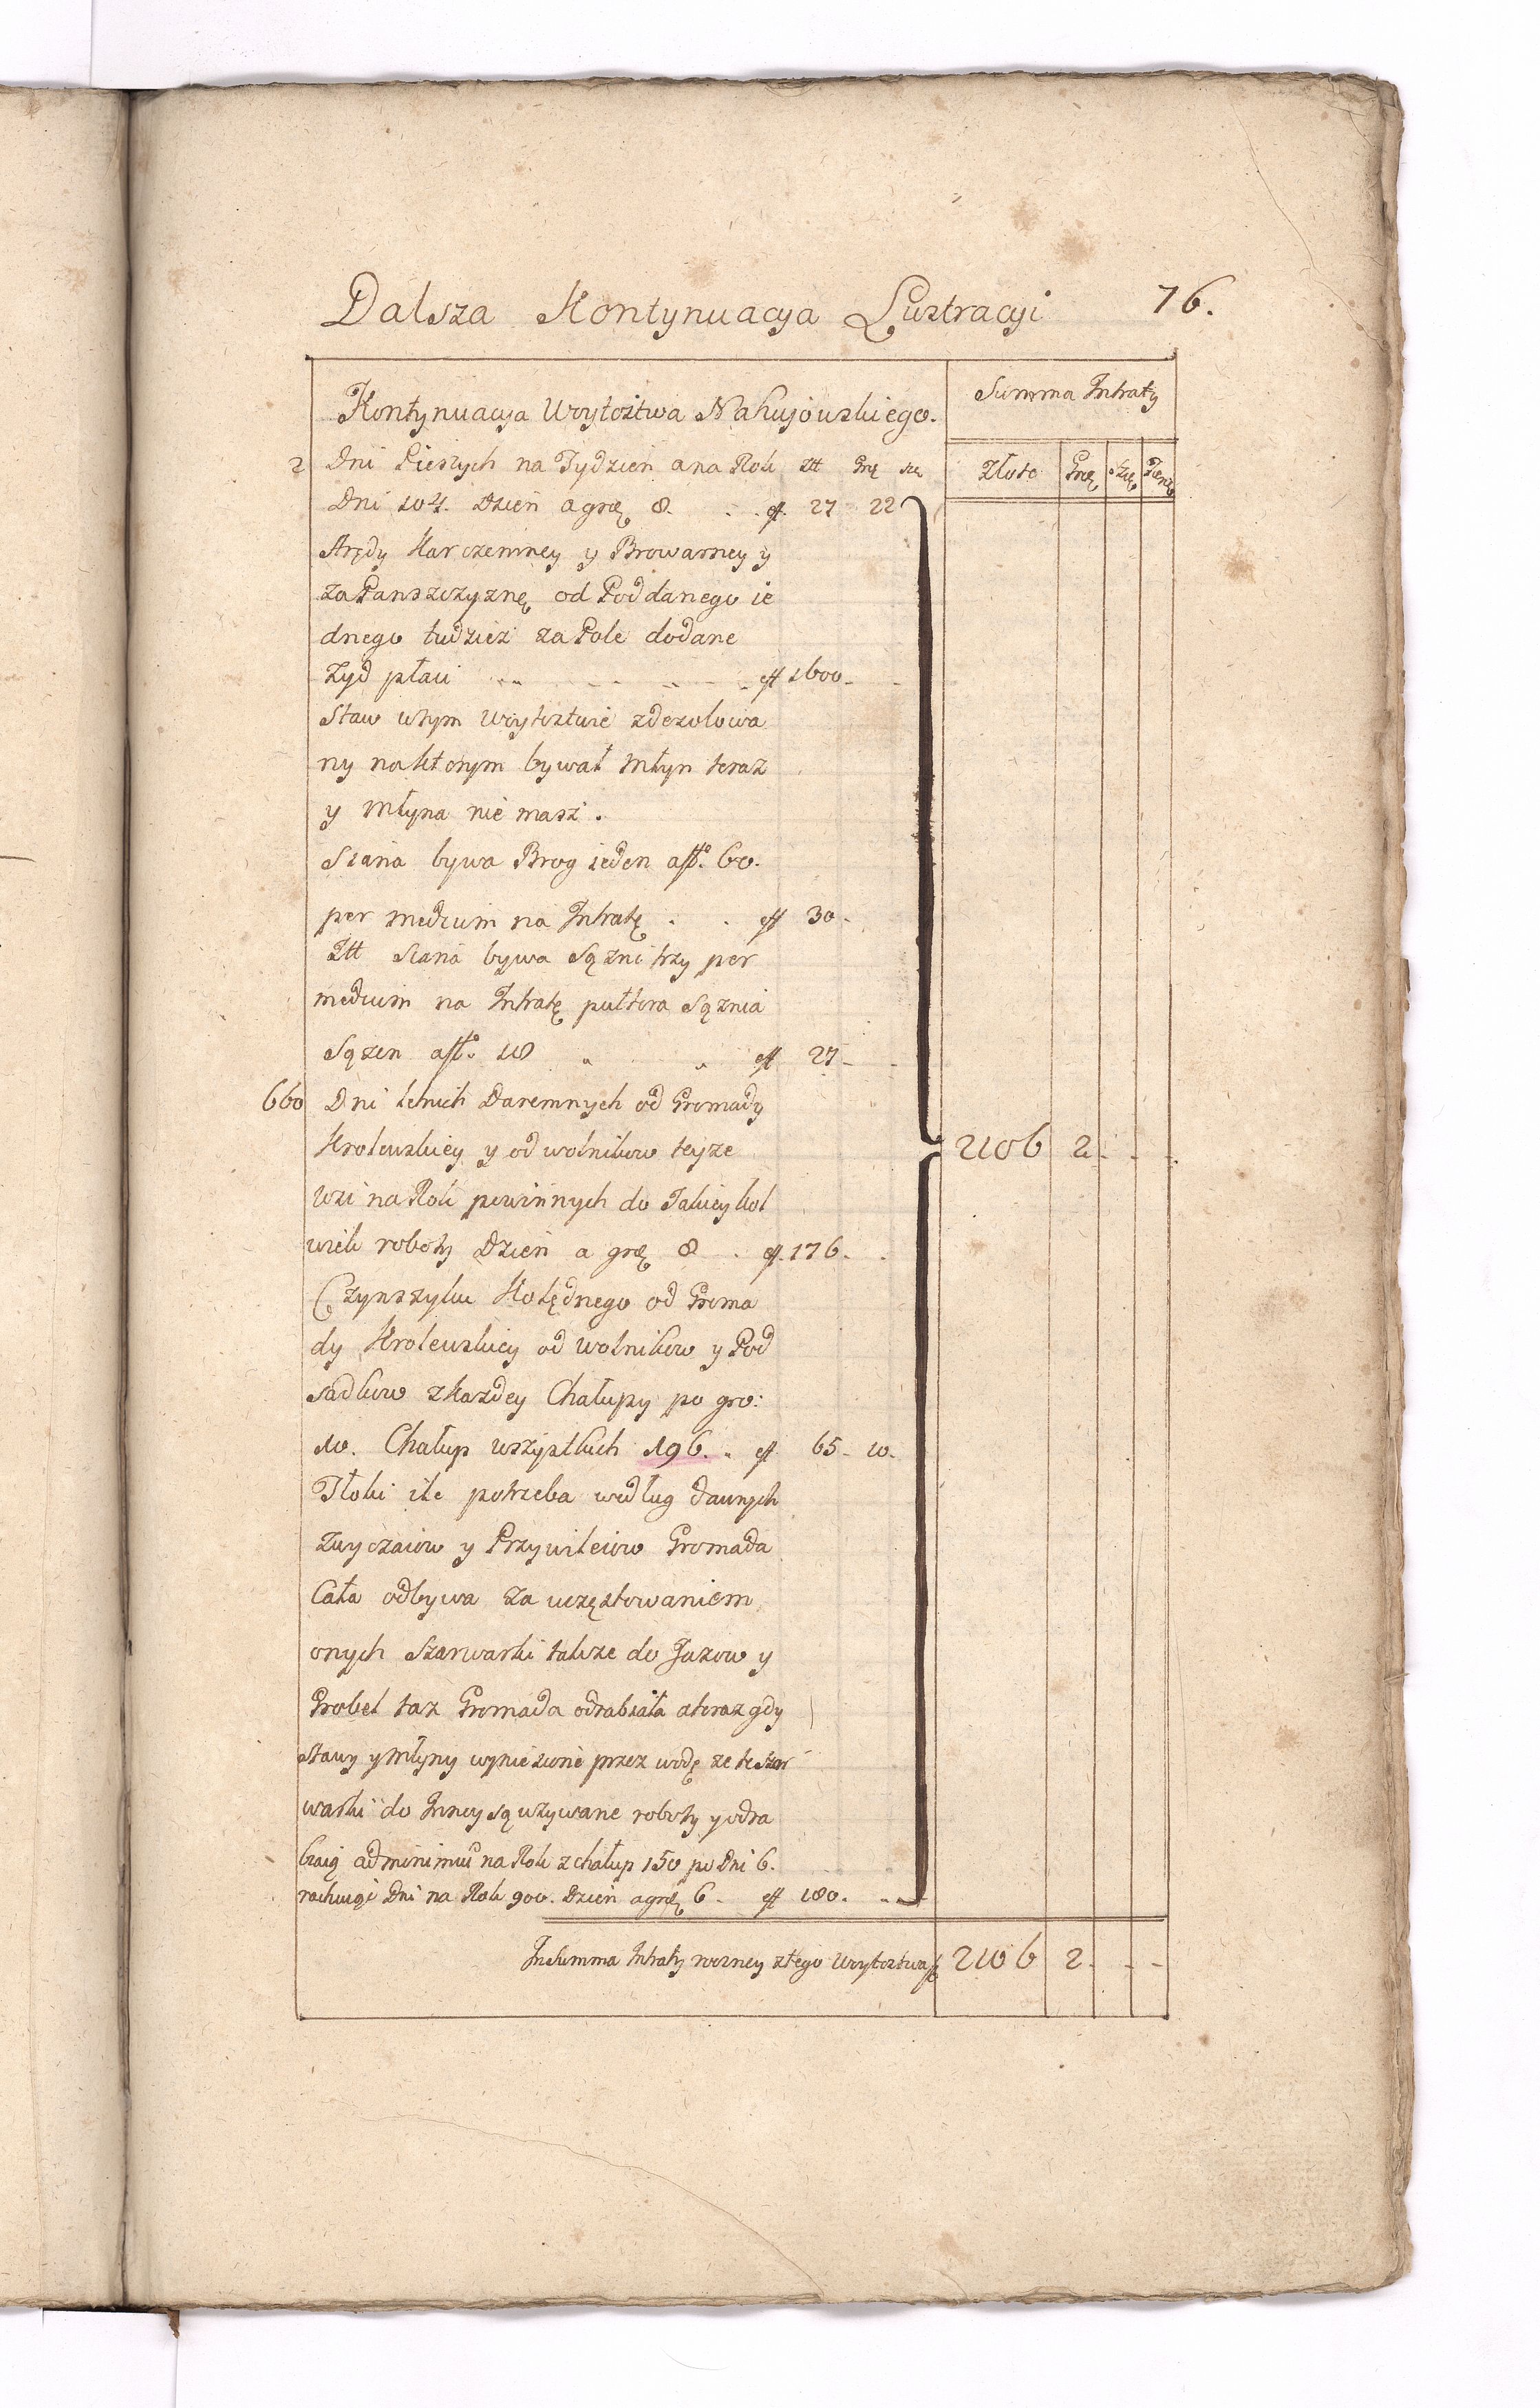 Dalsza Kontynuacya Lustracyi 76.
Kontynuacya Wòytoztwa Nahujowskiego. Summa Intraty
2 Dni Pieszych na Tydzien a na Rok Ztt Grę szę Złote Grę Szę Pienę
Dni 104. Dzien a grę 8. . . eff. 27 22
Arędy Karczemney y Browarney y
za Panszczyznę od Poddanego ie
dnego tudziez za Pole dodane
Zyd płaci eff 1600.
Staw wtym Wòytoztwie zdezolowa
ny na ktorym bywał Młyn teraz
y Młyna nie masz.
Siana bywa Brog ieden aff. 60.
per medium na Intratę . . eff 30.
Itt Siana bywa Sązni trzy per
medium na Intratę pułtora Sąznia
Sązen aff. 18 eff 27.
660 Dni Letnich Daremnych od Gromady
Krolewskiey y od wolnikow teyze 2106 2. - -
Wsi na Rok powinnych do Jakieykol
wiek roboty Dzien a grę 8 . eff. 176.
Czynszyku Kolędnego od Groma
dy Krolewskiey od Wolnikow y Pod
sadkow z kazdey Chałupy po gro:
10. Chałup wszystkich 196. eff 65. 10.
Tłoki ile potrzeba według dawnych
Zwyczaiow y Przywileiow Gromada
Cała odbywa za uczęstowaniem
onych Szarwarki takze do Jazow y
Grobel taz Gromada odrabiała a teraz gdy
Stawy y Młyny wyniesione przez wodę ze te szar
warki do Inney są uzywane roboty y odra
biaią ad minimū na Rok z chałup 150 po Dni 6.
rachuiąc Dni na Rok 900. Dzien a grę 6. eff 180.
In Summa Intraty roczney z tego Wòytoztwa 2106 2. - -